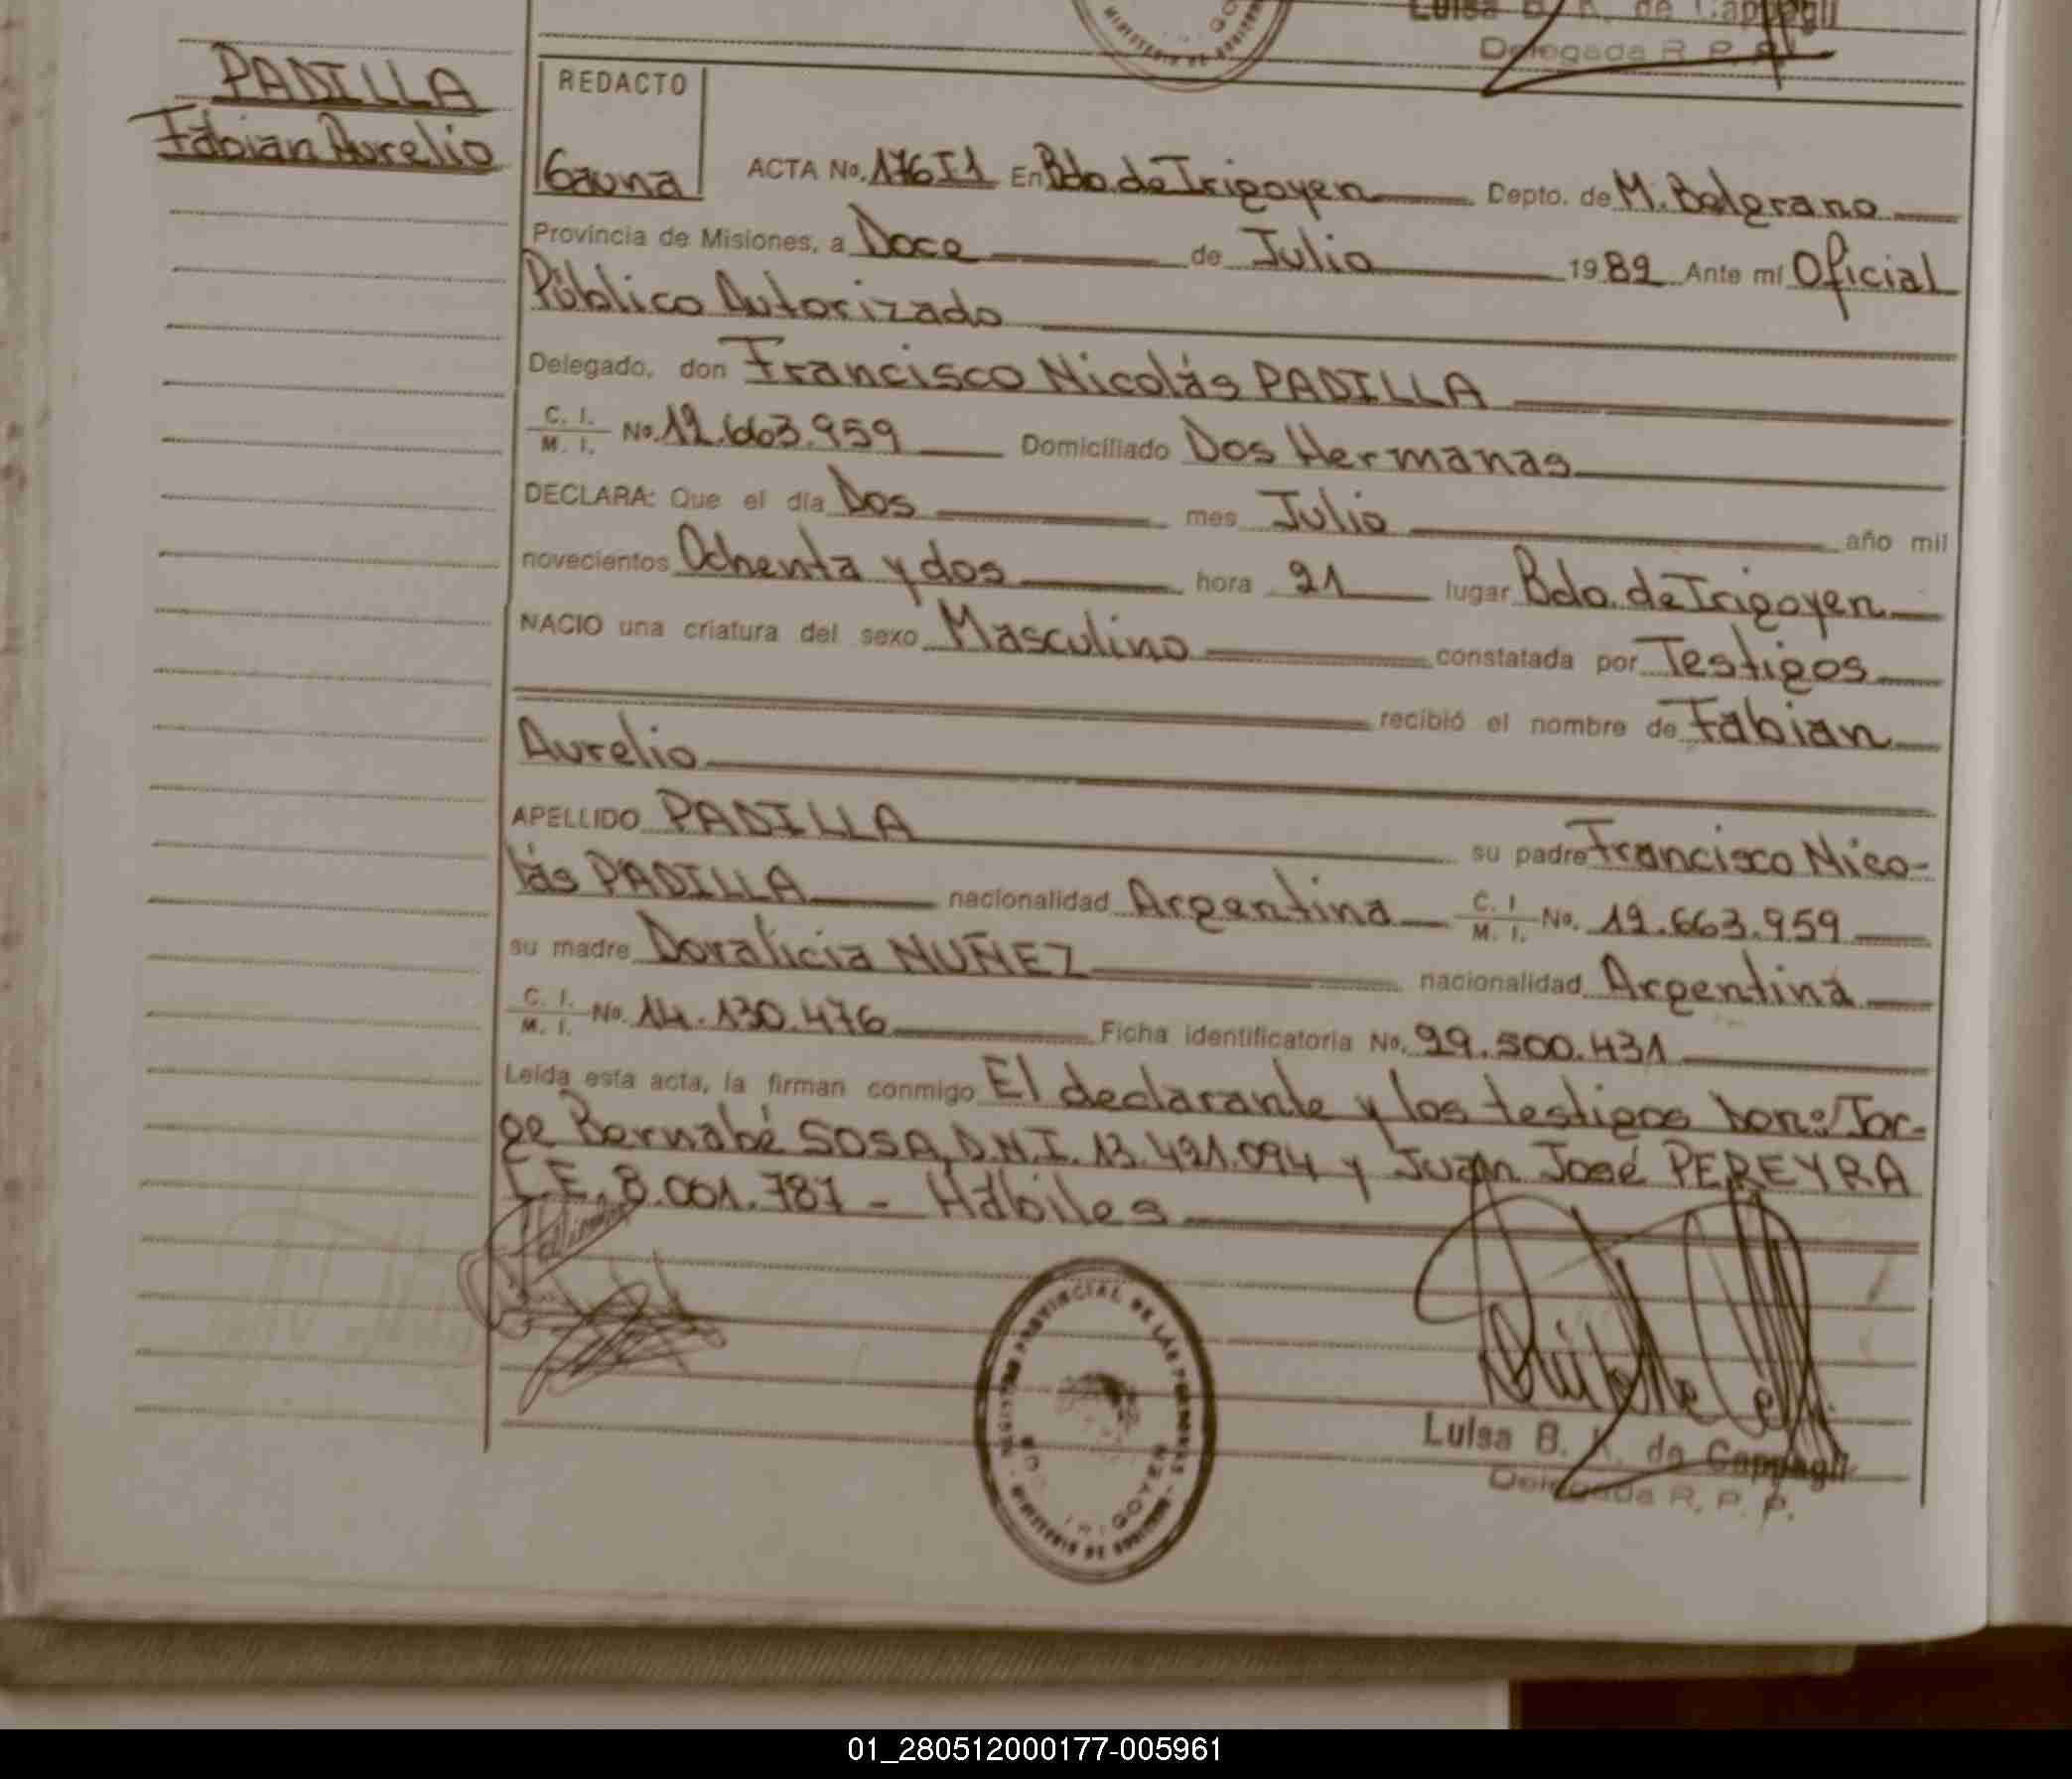 Luisa B. K. de Cappagli
Delegada R. P. P.
PADILLA
Fabian Aurelio
REDACTO
Gauna
ACTA No. 176 I1 En Bdo. de Irigoyen Depto. de M. Belgrano
Provincia de Misiones, a Doce de Julio 1982 Ante mi Oficial
Público Autorizado
Delegado, don Francisco Nicolás PADILLA
C. I. M. I. No. 12.663.959 Domiciliado Dos Hermanas
DECLARA: Que el día Dos mes Julio año mil
novecientos Ochenta y dos hora 21 lugar Bdo. de Irigoyen
NACIO una criatura del sexo Masculino constatada por Testigos
recibió el nombre de Fabian
Aurelio
APELLIDO PADILLA su padre Francisco Nico-
lás PADILLA nacionalidad Argentina C. I M. I. No. 12.663.959
su madre Doralicia NUÑEZ nacionalidad Argentina
C. I. M. I. No. 14.130.476 Ficha identificatoria No. 29.500.431
Leída esta acta, la firman conmigo El declarante y los testigos Don: Jor-
ge Bernabé SOSA D.N.I. 13.421.094 y Juan José PEREYRA
L.E. 8.001.787 - Hábiles
REGISTRO PROVINCIAL DE LAS PERSONAS - MINISTERIO DE GOBIERNO
BDO. IRIGOYEN
Luisa B. K. de Cappagli
Delegada R. P. P.
01_280512000177-005961